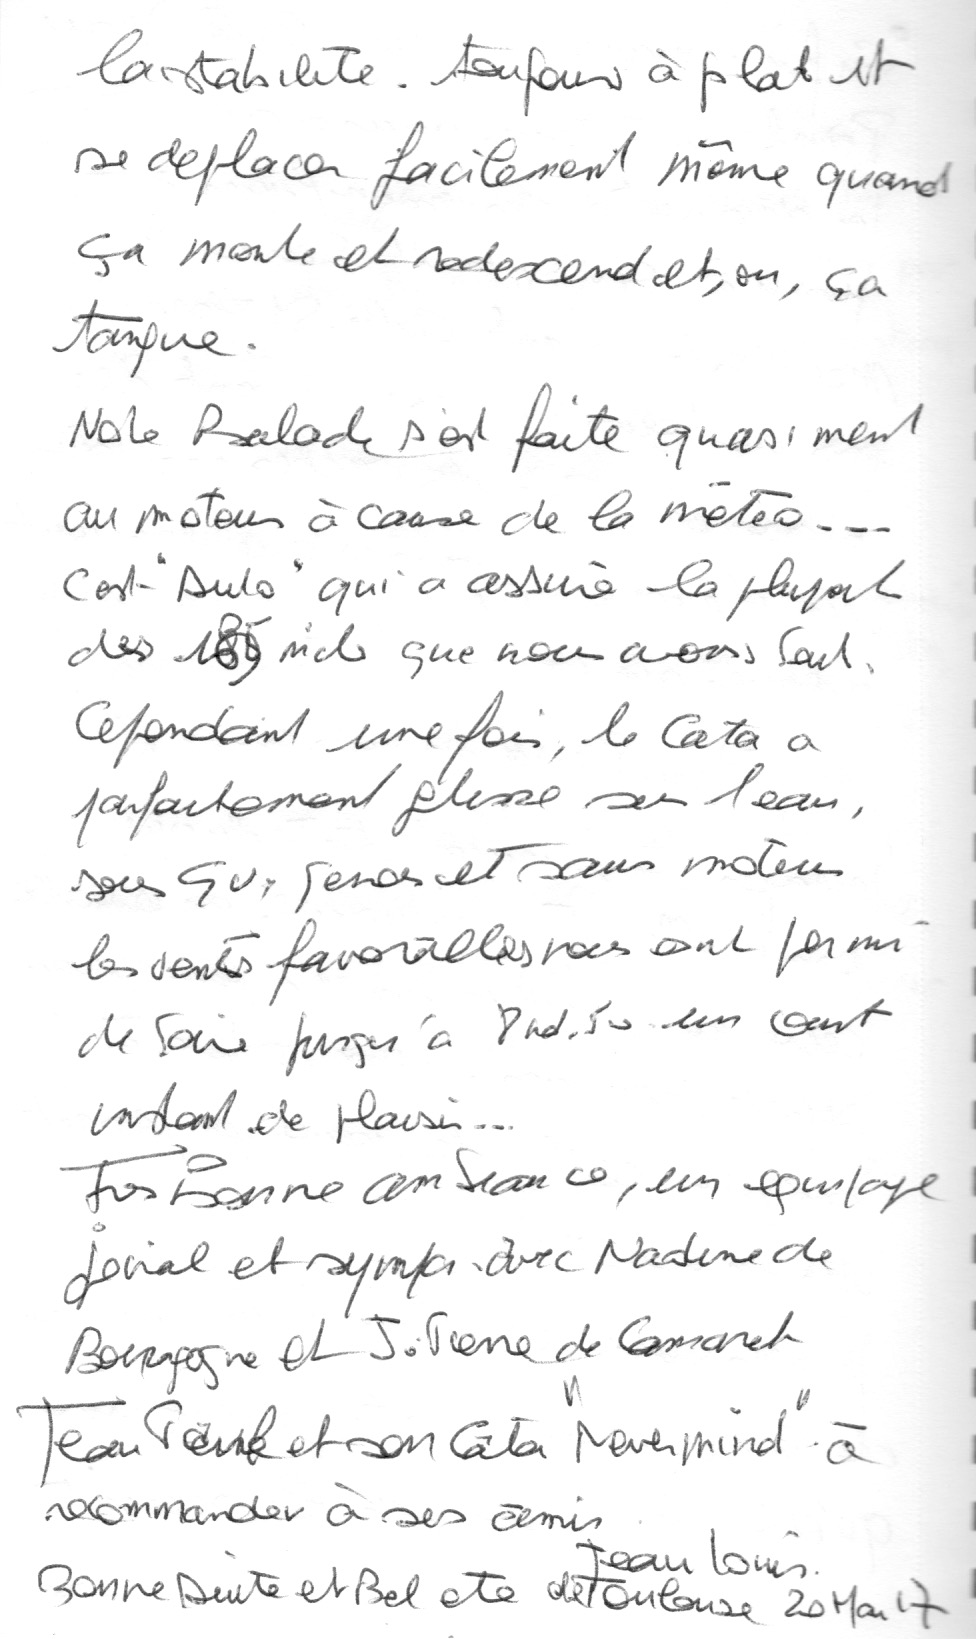 la stabilité. toujours à plat et
se deplacer facilement même quand
ça monte et redescend et, ou, ça
tangue.
Notre Balade s'est faite quasiment
au moteur à cause de la météo ---
C'est "Auto" qui a assuré la plupart
des 185 miles que nous avons fait.
Cependant une fois, le Cata a
parfaitement glissé sur l'eau,
sous et sans moteur
les vents favorables nous ont permi
de faire jusqu'à un court
instant de plaisir...
Très Bonne ambiance, un equipage
jovial et sympa avec Nadine de
Bourgogne et J. Pierre de Camaret
Jean et son Cata "Nevermind" à
recommander à ses amis
Jean Louis.
Bonne suite et Bel ete de Toulouse 20 Mai 17